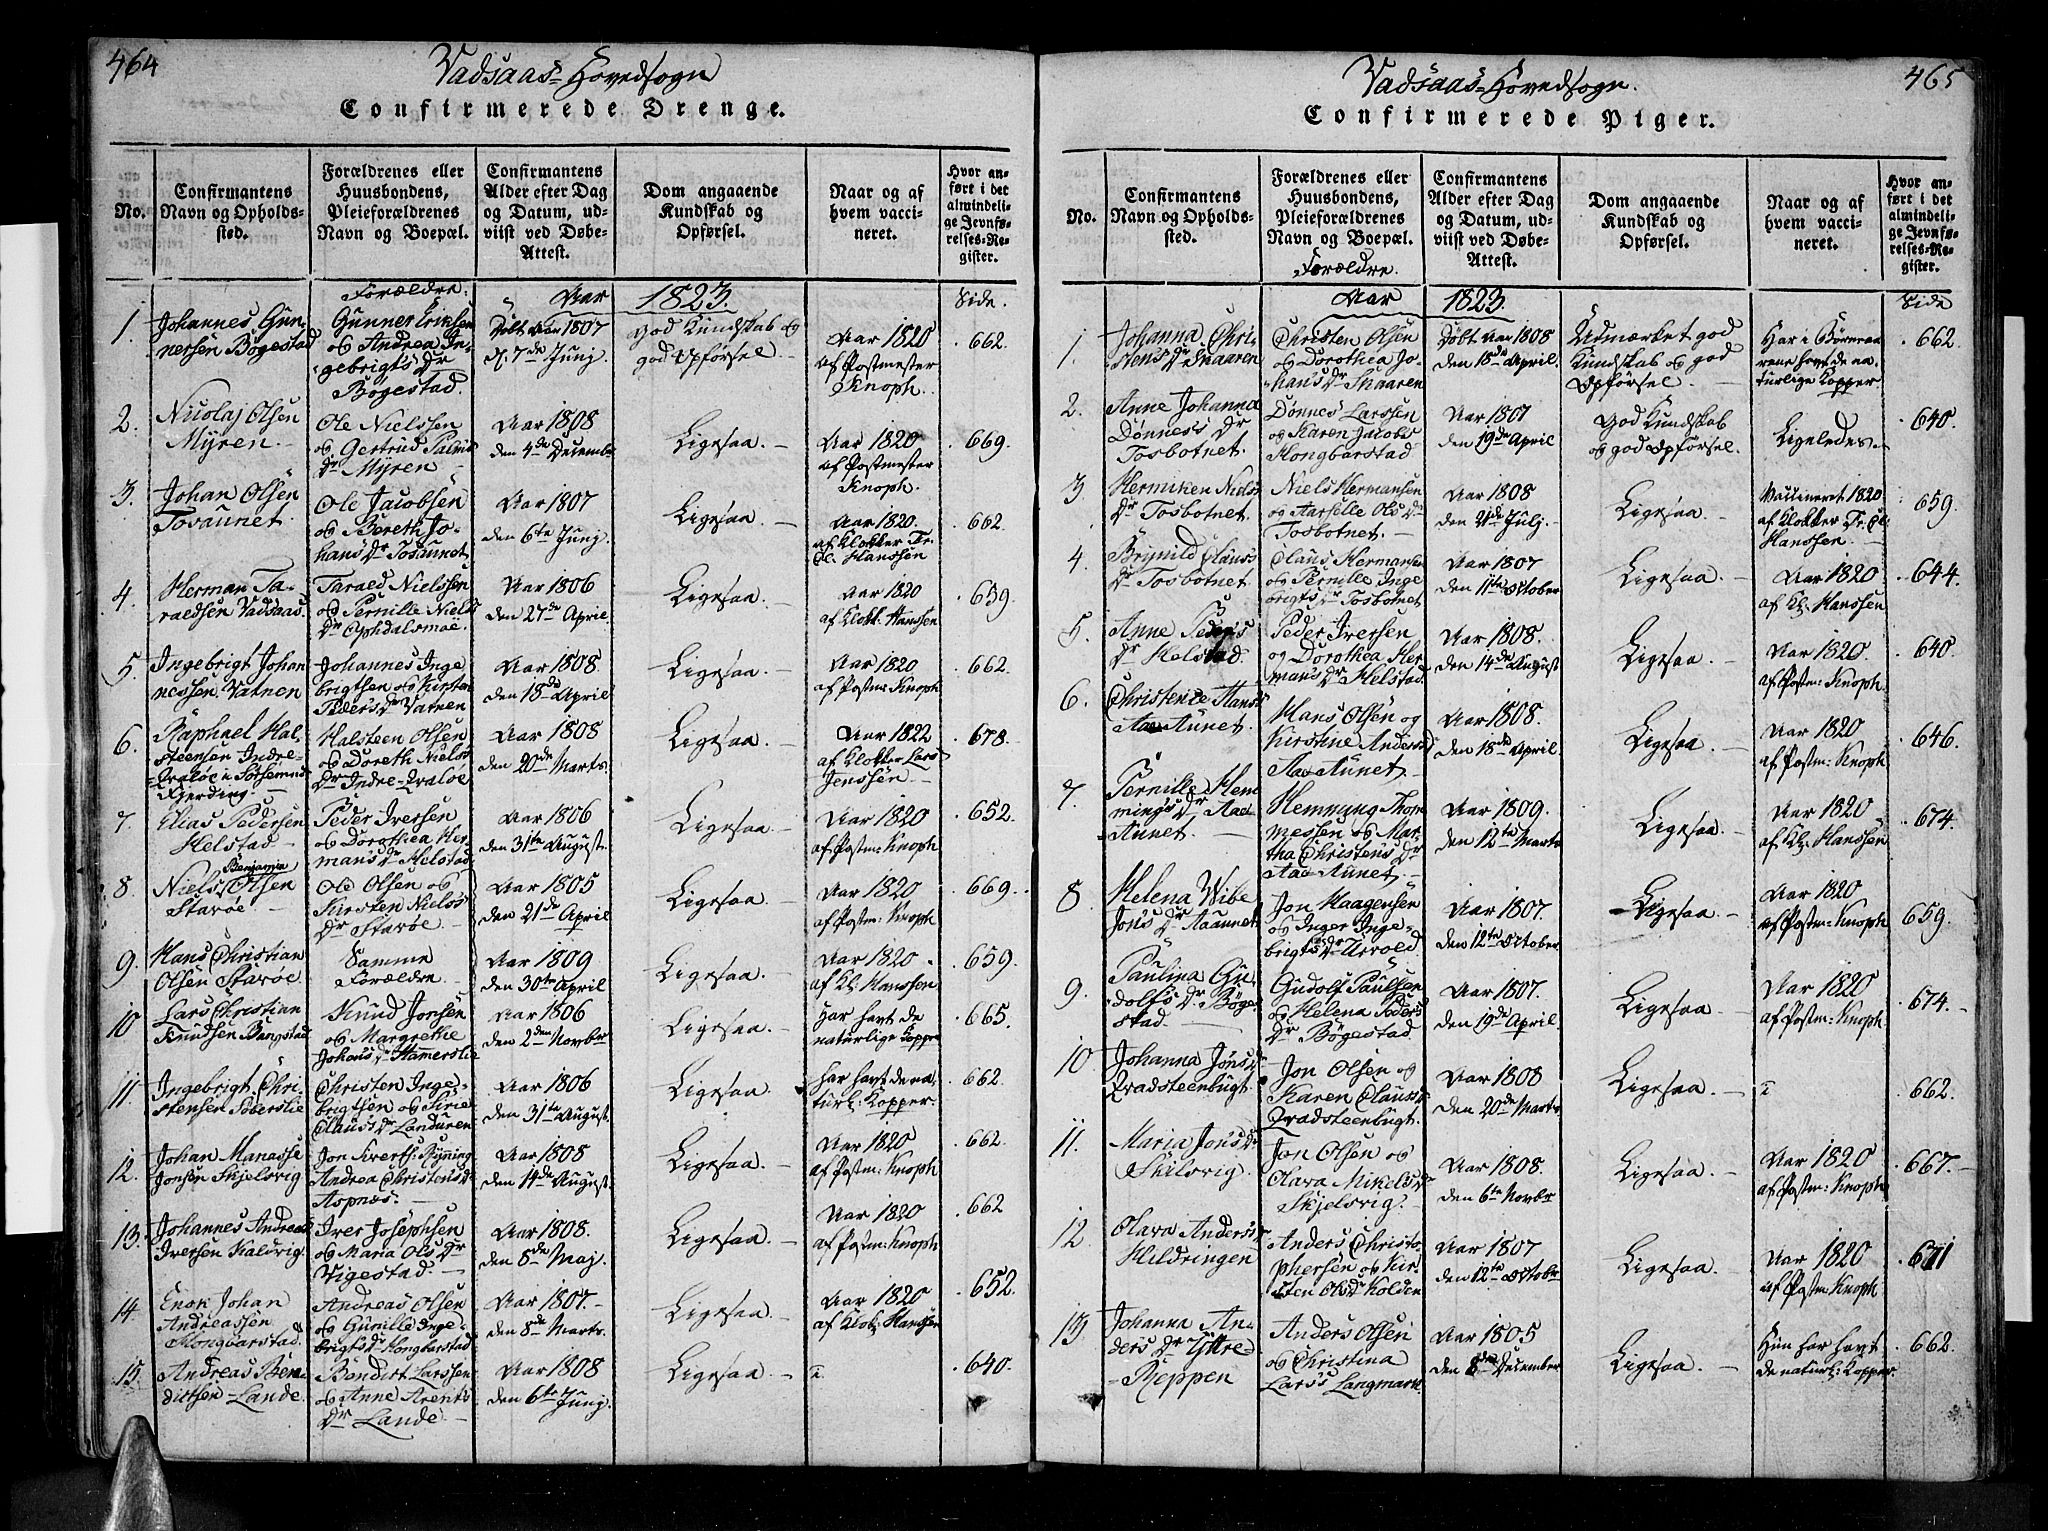 464
Vadsaas-Hovedsogn
Confirmerede Drenge.
No.
Confirmantens
Navn og Opholds-
sted.
Forældrenes eller
Huusbondens,
Pleieforældrenes
Navn og Boepæl.
Confirmantens
Alder efter Dag
og Datum, ud-
viist ved Døbe-
Attest.
Dom angaaende
Kundskab og
Opførsel.
Naar og af
hvem vacci-
neret.
Hvor an-
ført i det
almindeli-
ge Jevnfø-
relses-Re-
gister.
Forældre.
Aar 1823.
Side.
1.
Johannes Gun-
nersen Bøgestad
Gunner Eriksen
og Andrea In-
gebrigts Dr
Bøgestad.
Døbt Aar 1807
d. 7de Junj.
God Kundskab og
god Opførsel
Aar 1820
af Postmester
Knoph.
662.
2.
Nicolaj Olsen
Myren.
Ole Nielssen
og Gertrud Palms
Dr Myren
Aar 1808
den 4de Decembr
Ligesaa.
Aar 1820
af Postmester
Knoph.
669.
3.
Johan Olsen
Tosaunet.
Ole Jacobsen
og Bereth Jo-
hans Dr Tosaunet
Aar 1807
den 6te Junj.
Ligesaa
Aar 1820.
af Klokker Fr.
Cl. Hanssen
662.
4.
Herman Ta-
raldsen Vadsaas.
Tarald Nielssen
og Pernille Niels
Dr Ophdalsmoe.
Aar 1806
den 27de April
Ligesaa
Aar 1820
af Klokk: Hanssen
659.
5.
Ingebrigt Johan
nessen Vatnen
Johannes Inge
brigtsen og Kirsten
Peders Dr Vatnen
Aar 1808
den 18de April
Ligesaa.
Aar 1820
af Postm: Knoph
662.
6.
Raphael Hal-
steensen Indre-
Qvaløe i
Fjerding.
Halsteen Olsen
og Doreth Niels
Dr Indre-Qvaløe
Aar 1808
den 20de Marts
Ligesaa
Aar 1822
af Klokker Lars
Jenssen
678.
7.
Elias Pedersen
Helstad
Peder Iversen
og Dorothea Her-
mans Dr Helstad
Aar 1806
den 31te August
Ligesaa.
Aar 1820
af Postm: Knoph
652.
8.
Niels Benjamin Olsen
Starøe.
Ole Olsen og
Kirsten Niels
Dr Starøe
Aar 1805
den 21de April
Ligesaa.
Aar 1820
af Postm: Knoph
669.
9.
Hans Christian
Olsen Starøe
Samme
Forældre
Aar 1809
den 30te April
Ligesaa.
Aar 1820
af Kl: Hanssen
659.
10
Lars Christian
Knudsen Bangstad
Knud Jonsen
og Margrethe
Johans Dr Hammerslie
Aar 1806
den 2den Novbr
Ligesaa.
Har havt de
naturlige Kopper
665.
11.
Ingebrigt Chri-
stensen Søberslie
Christen Inge-
brigtsen og Sirie
Claus Dr Landuren
Aar 1806
den 31te August.
Ligesaa
har havt de na-
turl: Kopper.
662.
12.
Johan Manasse
Jonsen Skjelsvig
Jon Sivertss: Rynning
Andrea Christens Dr
Aspnæs.
Aar 1808
den 14de August.
Ligesaa.
Aar 1820
af Postm: Knoph
662.
13.
Johannes Andreas
Iversen Kaldvig.
Iver Josephsen
og Maria Ols Dr
Vigestad.
Aar 1808.
den 8de Maj.
Ligesaa.
Aar 1820
af Postm: Knoph.
662
14.
Enok Johan
Andreassen
Hongbarstad.
Andreas Olsen
og Gunille Inge-
brigts Dr Hongbarstad
Aar 1807.
den 8de Marts.
Ligesaa.
Aar 1820
af Klok: Hanssen
652.
15.
Andreas Ben-
dictsen Lande.
Bendict Larssen
og Anne Arents
Dr Lande
Aar 1808
den 6te Junj
Ligesaa.
640.
465
Vadsaas-Hovedsogn.
Confirmerede Piger.
No.
Confirmantens
Navn og Opholds-
sted.
Forældrenes eller
Huusbondens,
Pleieforældrenes
Navn og Boepæl.
Confirmantens
Alder efter Dag
og Datum, ud-
viist ved Døbe-
Attest.
Dom angaaende
Kundskab og
Opførsel.
Naar og af
hvem vacci-
neret.
Hvor an-
ført i det
almindeli-
ge Jevnfø-
relses-Re-
gister.
Forældre.
Aar 1823
Side
1.
Johanna Chri-
stens Dr Skaaren
Christen Olsen
og Dorothea Jo-
hans Dr Skaaren
Døbt Aar 1808
den 18de April.
Udmærket god
Kundskab og god
Opførsel.
Har i Børneaa-
rene havt de na
turlige Kopper.
662.
2.
Anne Johanna
Dønnes Dr
Tosbotnet.
Dønnes Larssen
og Karen Jacobs
Hongbarstad
Aar 1807
den 19de April
God Kundskab
og god Opførsel.
Ligeledes.
640.
3
Hermiken Niels
Dr Tosbotnet.
Niels Hermansen
og Aarsille Ols Dr
Tosbotnet.
Aar 1808
den 21de Julj.
Ligesaa
Vaccineret 1820
af Klokker Fr. Cl.
Hanssen.
659.
4.
Brynild Clauss
Dr Tosbotnet.
Claus Hermansen
og Pernille Inge
brigts Dr Tosbotnet
Aar 1807
den 11te October
Ligesaa
Aar 1820
af Kl: Hanssen
644.
5.
Anne Peders
Dr Helstad.
Peder Iversen
og Dorothea Her
mans Dr Helstad.
Aar 1808.
den 14de August
Ligesaa
Aar 1820.
af Postm: Knoph.
640.
6.
Christence Hans
Aa-Aunet.
Hans Olsen og
Kirstine Anders
Aa-Aunet.
Aar 1808.
den 18de April
Ligesaa
Aar 1820
af Postm: Knoph
646.
7.
Pernille Hem
mings Dr Aae-
Aunet.
Hemming Thom-
messen og Mar-
tha Christens Dr
Aa-Aunet.
Aar 1809.
den 12te Marts
Ligesaa.
Aar 1820
af Kl: Hanssen
674.
8
Helena Wibe
Jons Dr Aaaunet.
Jon Haagensen
og Inger Inge-
brigts Dr Urvold
Aar 1807.
den 12te October
Ligesaa.
Aar 1820
af Postm: Knoph
659.
9.
Paulina Gu
dolfs Dr Bøge-
stad.
Gudolf Paulsen
og Helena Peders
Dr Bøgestad
Aar 1807.
den 19de April.
Ligesaa.
Aar 1820
af Postm: Knoph
674.
10.
Johanna Jons
Qvadsteenbugt.
Jon Olsen og
Karen Claus
Qvadsteenbugt.
Aar 1808
den 20de Marts
Ligesaa.
662.
11.
Maria Jons Dr
Skilsvig.
Jon Olsen og
Olava Mikels Dr
Skjelsvig.
Aar 1808.
den 6te Novbr
Ligesaa.
Aar 1820
af Postm: Knoph
667.
12.
Olava Anders
Hildringen
Anders Christo-
phersen og Kir-
sten Ols Dr Kolden
Aar 1807
den 12te October
Ligesaa.
Aar 1820
af Postm: Knoph
671
13.
Johanna An-
ders Dr Yttre-
Reppen
Anders Olsen
og Christina
Lars's Langmark
Aar 1805
den 8de December
Ligesaa
Hun har havt
de naturl: Kopper.
662.